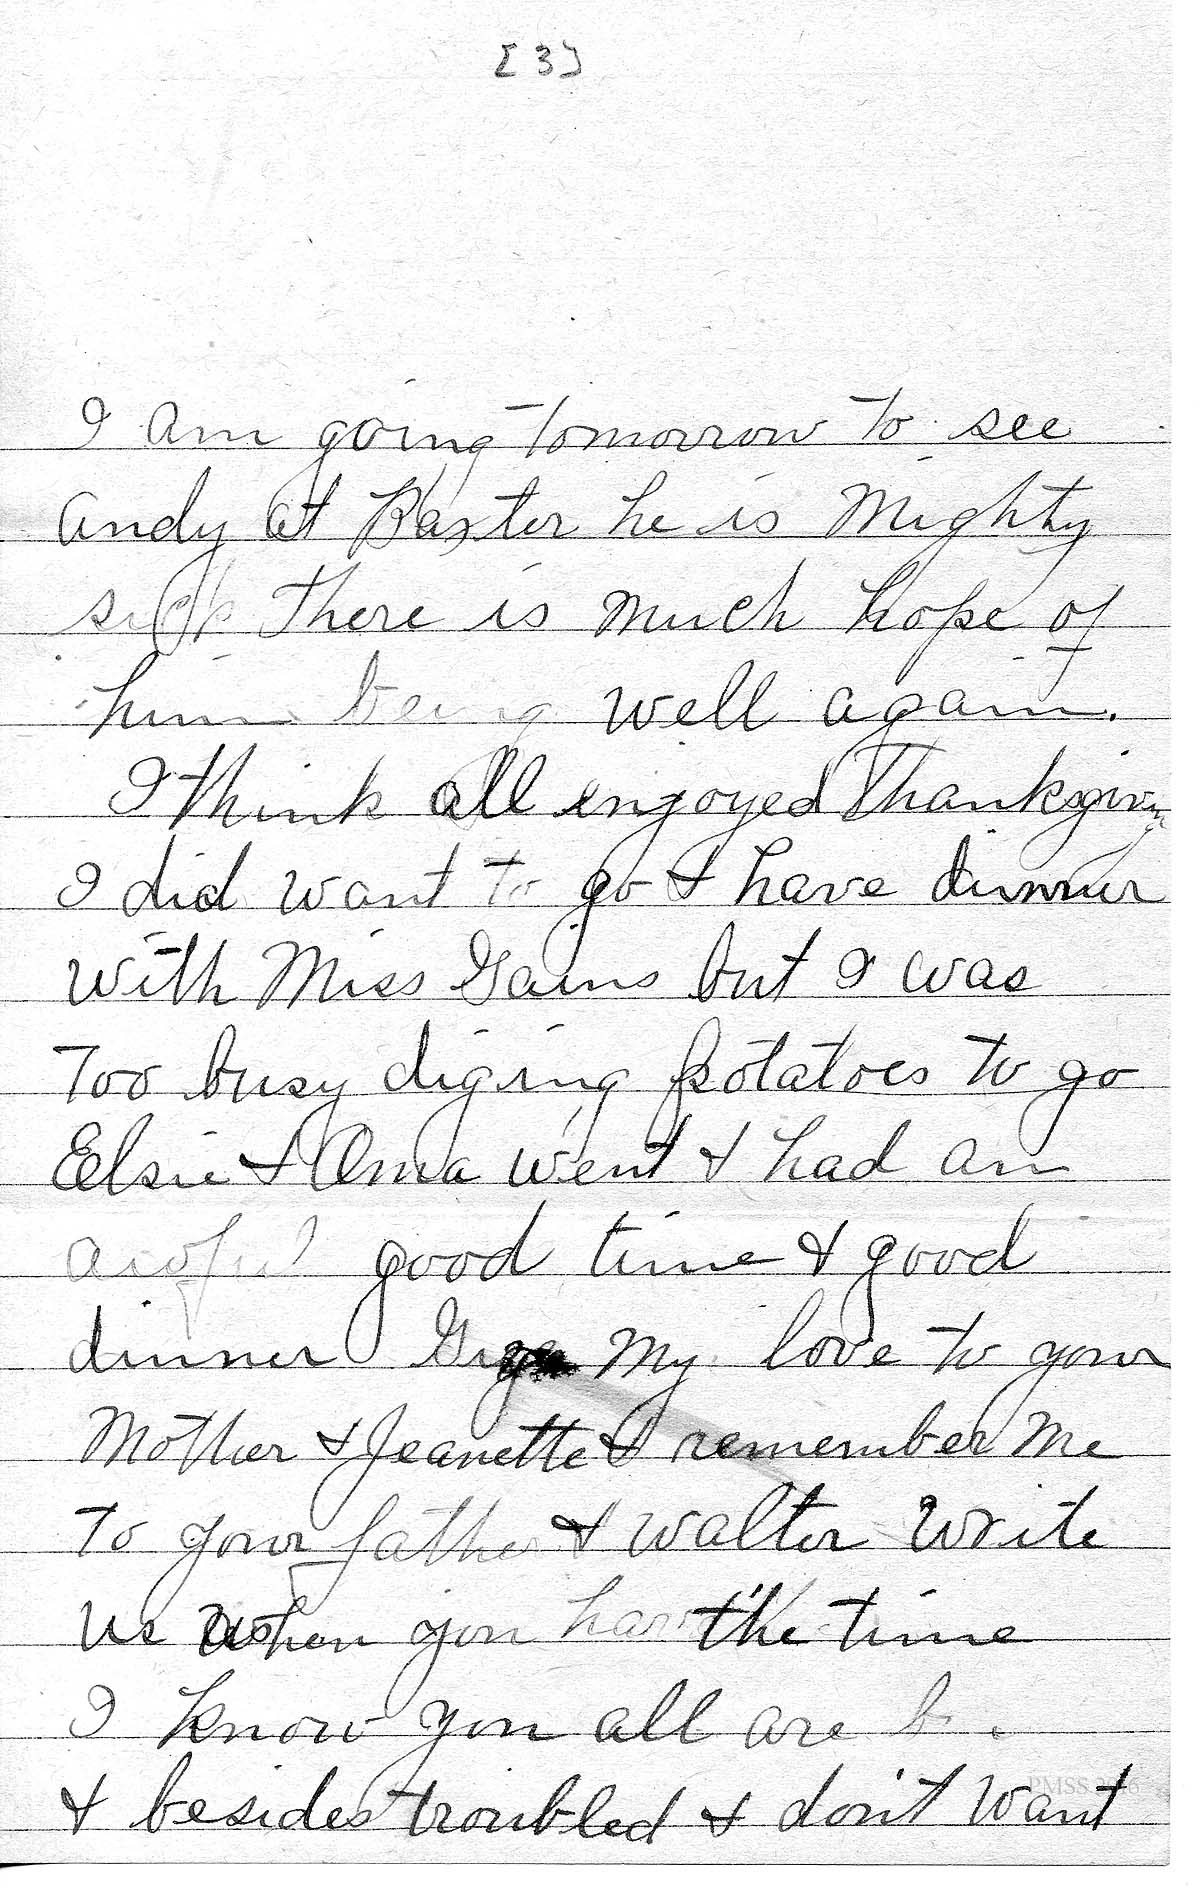 [3]
I am going tomorrow to see
Andy at Baxter he is Mighty
sick there is much hope of
him being well again.
I think all enjoyed Thanksgiving
I did want to go & have dinner
with Miss Gains but I was
Too busy diging potatoes to go
Eelsie & Oma went & had an
awful good time & good
dinner Give My love to your
Mother & Jeanette & remember Me
To your father & Walter Write
us when you have the time
I know you all are
& besides troubled & don't want
PMSS